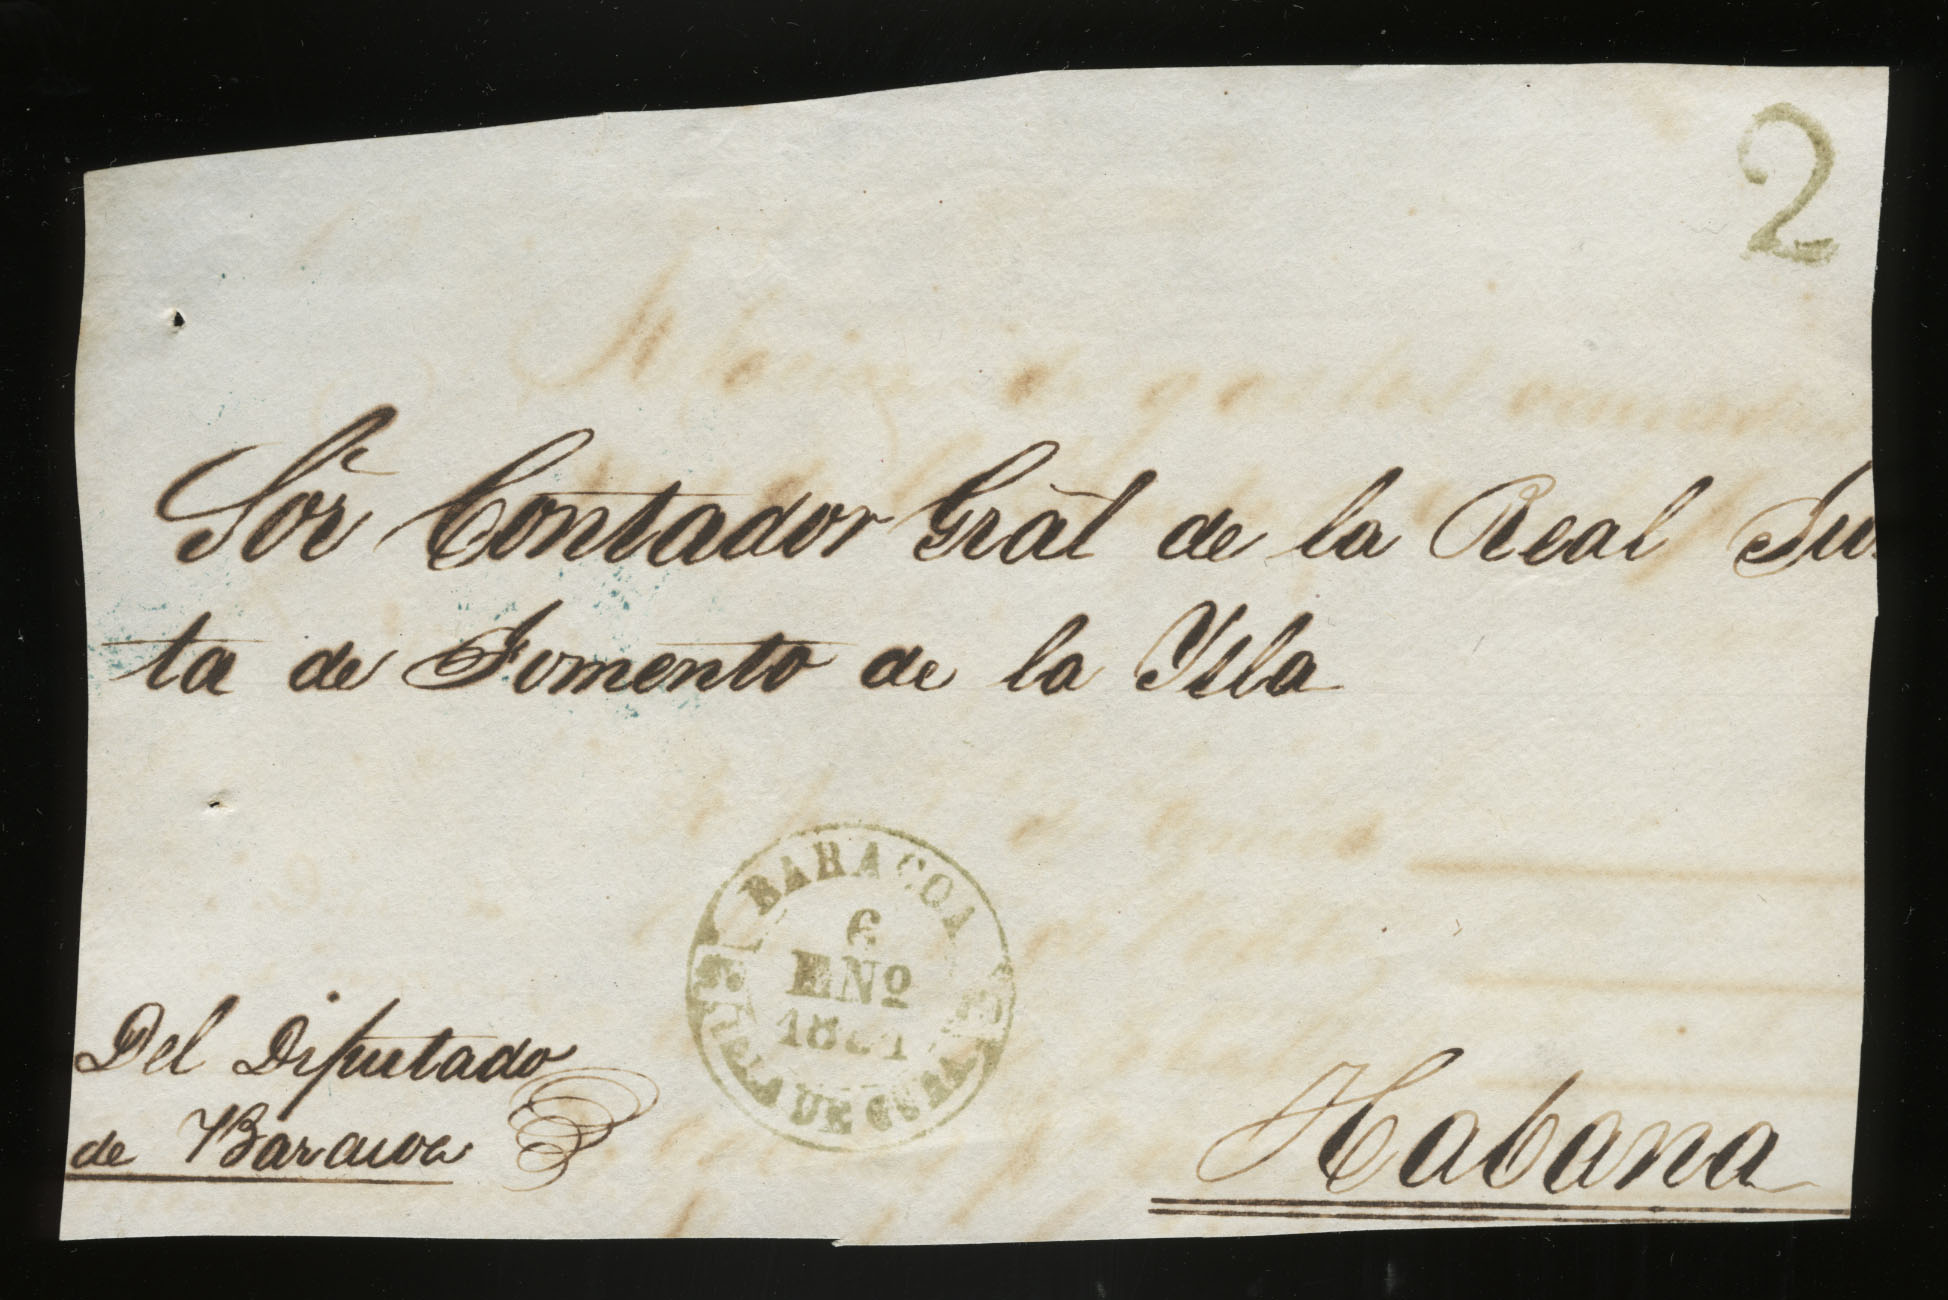 2
Sor Contador Gral de la Real Jun
ta de Fomento de la Ysla
BARACOA
6
ENO
ISLA DE CUBA
Del Diputado
de Baracoa
Habana